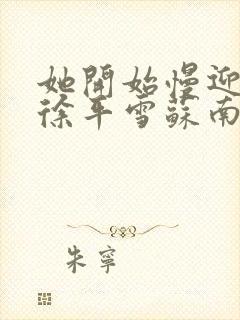 她開始慢迎
徐平雪蘇南
朱寧